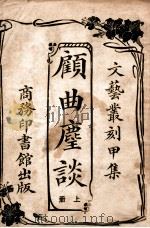 文藝叢刻甲集
顧曲麈談
上册
商務印書館出版